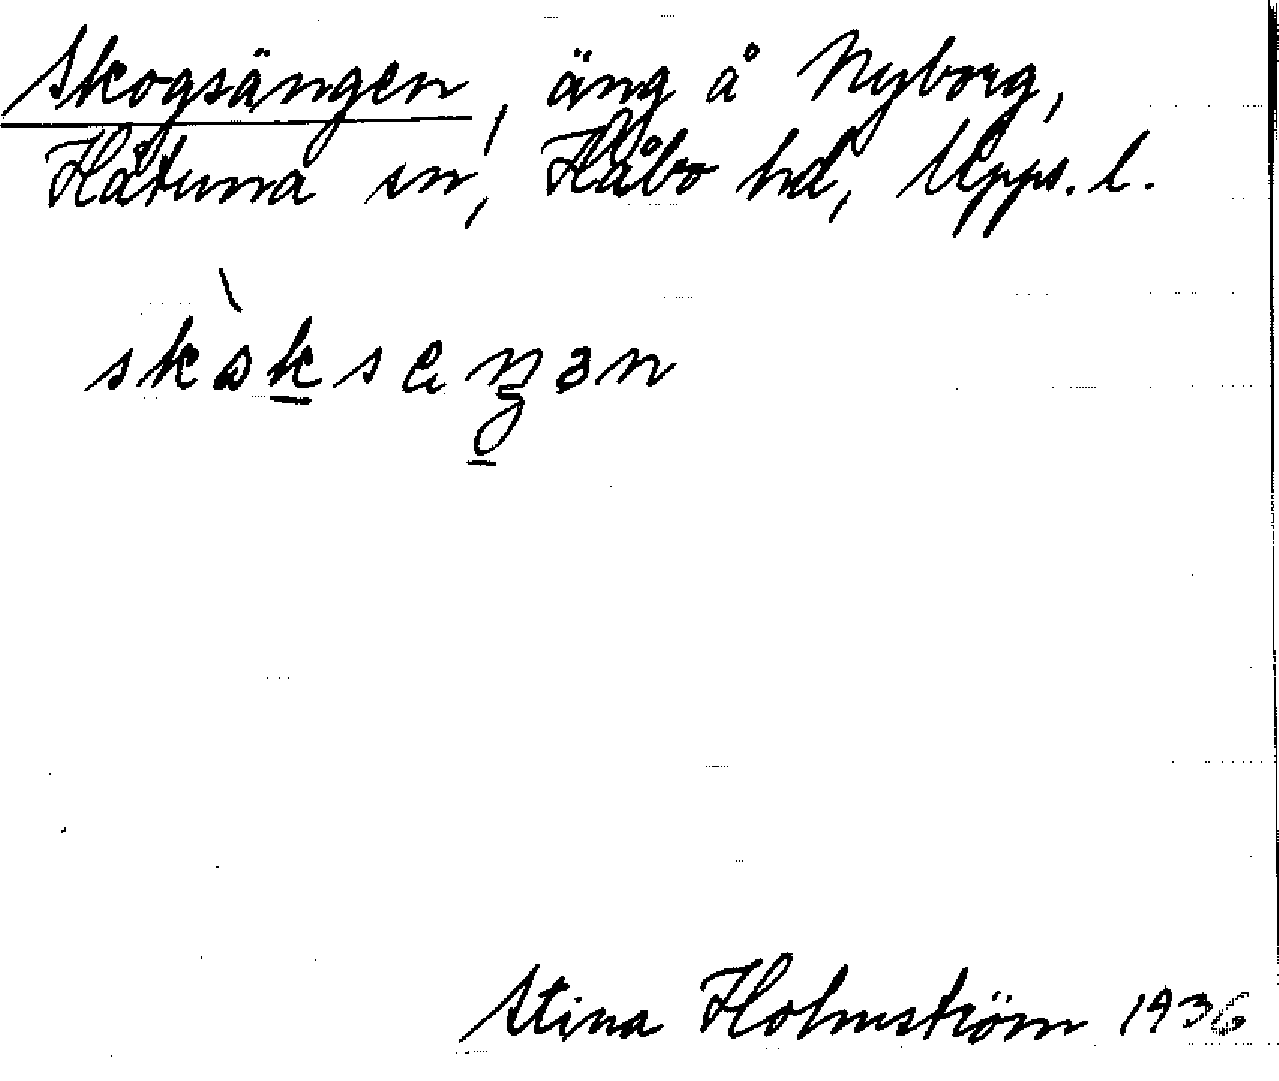 Skogsängen, äng å Nyborg,
Håtuna sn, Håbo hd, Upps. l.
Stina Holmström 1936